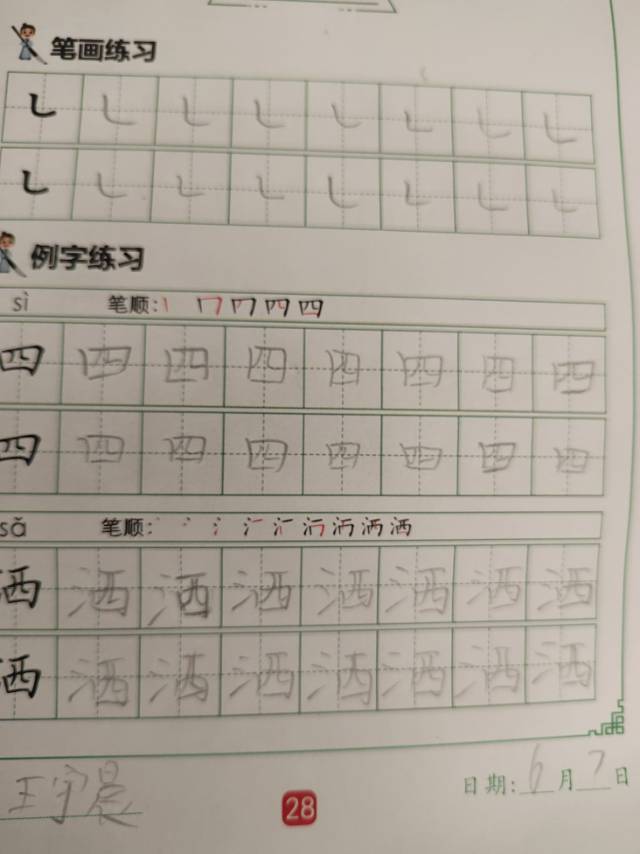 笔画练习
㇄ ㇄ ㇄ ㇄ ㇄ ㇄ ㇄ ㇄
㇄ ㇄ ㇄ ㇄ ㇄ ㇄ ㇄ ㇄
例字练习
sì 笔顺: 丨 冂 四
四 四 四 四 四 四 四 四
四 四 四 四 四 四 四 四
sǎ 笔顺: 丶 冫 氵 洒
洒 洒 洒 洒 洒 洒 洒 洒
洒 洒 洒 洒 洒 洒 洒 洒
王宇晨
28
日期: 6 月 7 日